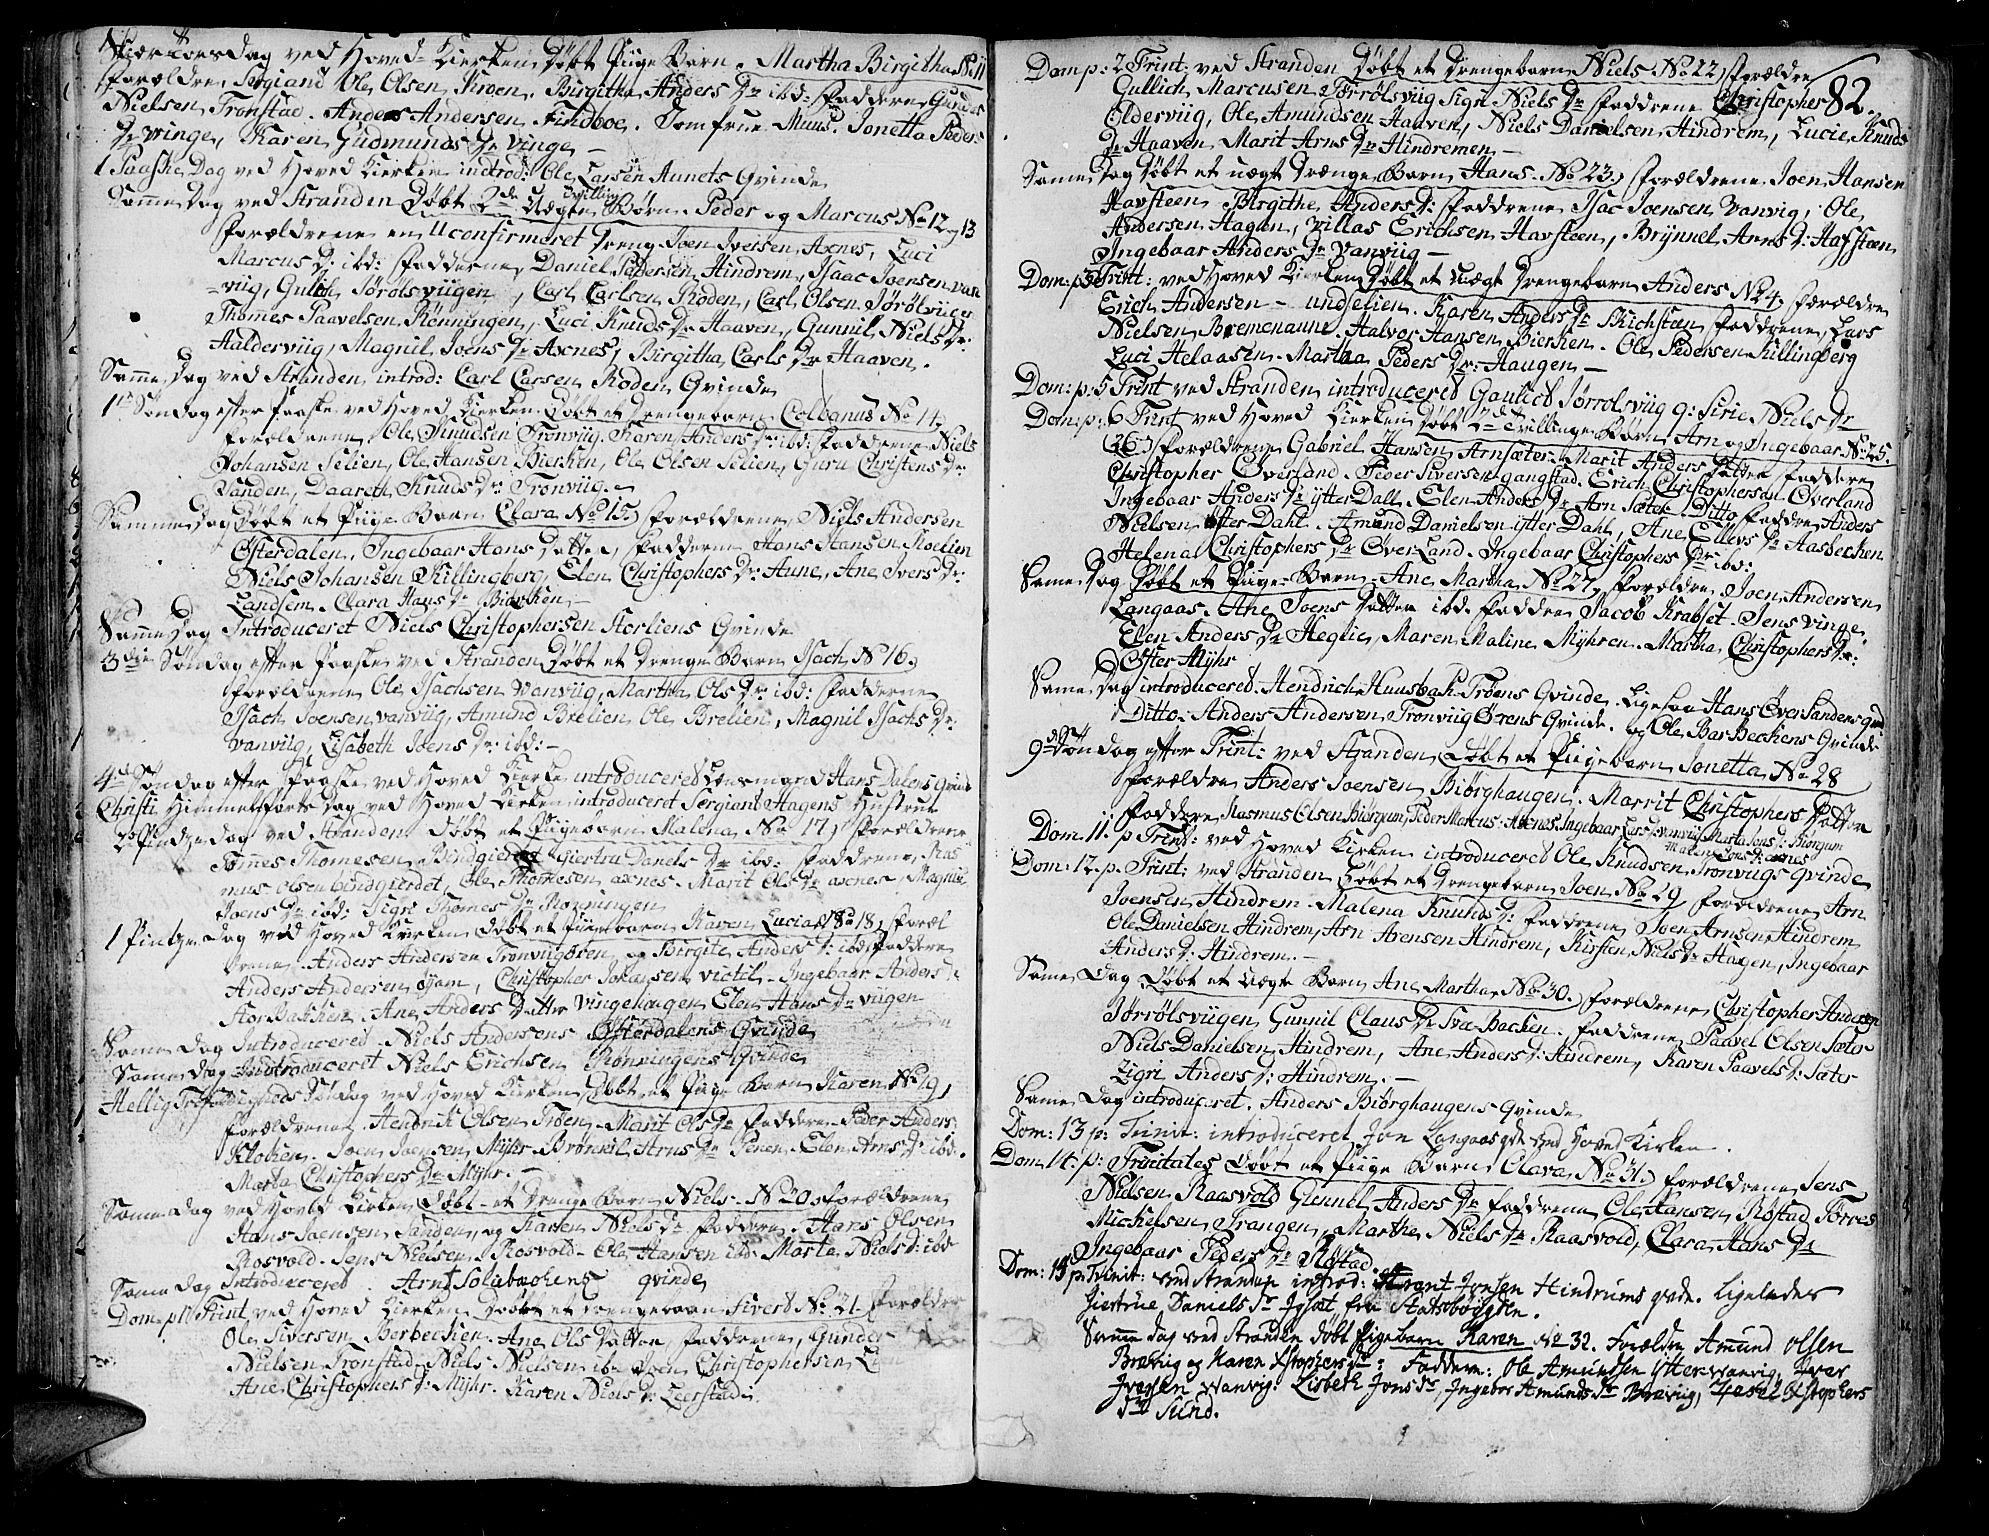 Skiær Torsdag ved Hoved Kierken Døbt Piige Barn Martha Birgitha No 11
Forældre Sergiand Ole Olsen Kroen. Birgitha Anders Dr ibd: Faddrene Gunder
Nielsen Tronstad. Anders Andersen Findboe. Jomfrue Muus. Jonetta Peders
Dr Vinge, Karen Gudmunds Dr Vinge
1 Paaske Dag ved Hoved Kierken introd: Ole Larsen Aunets Qvinde
Samme Dag ved Stranden Døbt 2de Uægte Tvilling Børn Peder og Marcus No 12, 13
Forældrene en Uconfirmeret Dreng Joen Iversen Axnes, Luci
Marcus Dr: ibd: Fadderne Daniel Pedersen Hindrem, Isaac Joensen Van
-viig, Gulich Jørølsviigen, Carl Carlsen Roden, Carl Olsen Jørølviigen
Thomes Paavelsen Rønningen, Luci Knuds Dr Haaven, Gunnil Niels Dr:
Aalderviig, Magnil Joens Dr Axnes, Birgitha Carls Dr Haaven.
Samme Dag ved Stranden introd: Carl Carsen Roden Qvinde
1te Søndag efter Paaske ved Hoved Kierken Døbt et Drengebarn Colbanus No 14,
Forældrene Ole Knudsen Tronviig, Karen Anders Dr: ibd: Faddrene Niels
Johansen Selien, Ole Hansen Bierken, Ole Olsen Selien, Guru Christens Dr:
Sanden, Daareth Knuds Dr: Tronviig.
Samme Dag Døbt et Piige Barn Clara No 15. Forældrene Niels Andersen
Østerdalen, Ingebaar Hans Datter, Fadderne Hans Hansen Moelien
Niels Johansen Killingberg, Elen Christophers Dr: Aune, Ane Ivers Dr:
Landsem. Clara Hans Dr Bierken
Samme Dag Introduceret Niels Christophersen Storliens Qvinde
3die Søndag efter Paaske ved Stranden Døbt et Drenge Barn Isach No 16,
Forældrene Ole Isachsen Vanviig, Martha Ols Dr: ibd: Fadderne
Isach Joensen Vanviig, Amund Brelien, Ole Brelien, Magnil Isachs Dr:
Vanviig, Lisabeth Joens Dr: ibd:
4de Søndag efter Paaske ved Hoved Kierke introducered Lænsmand Hans Dalens Qvinde
Christi Himmelfarts Dag ved Hoved Kierken introduceret Sergiant Hagens Hustrue
2 Pindse dag ved Stranden døbt et Piigebarn Malena No 17, Forældrene
Tønnes Thomesen Bindgierdet Giertru Danels Dr ibd: Faddrene Ras
mus Olsen bindgierdet, Ole Thomesen axnes. Marit Ols Dr axnes, Magnil
Joens Dr ibd: Sigri Thomes Dr Rønningen
1 Pintze dag ved Hoved Kirken døbt et Piigebarn Karen Lucia No 18, Foræl
drene Anders Andersen Tronvigøren og Birgite Anders Dr: ibd: Faddere
Anders Andersen øjam, Christopher Johansen victil. Ingebaar Anders Dr
Storbakken, Ane Anders Datter Vingehaugen Elen Hans Dr viigen
Same Dag Introducered Niels Andersens Østerdalens Qvinde
Same dag Introduceret Niels Erichsen Rønningens Qvinde
Hellig Trefoldigheds Søndag ved Hoved Kirken Døbt et Piige Barn Karen No 19,
Forældrene Hendrik Olsen Trøen, Marit Ols Dr Faddere Peder Anders:
Klohen. Joen Joensen Myhr. Brønnil Arns Dr Penen. Elen Arns Dr: ibd.
Marta Christophers Dr Myhr.
Same dag ved Hoved Kirken Døbt et Drenge Barn Niels. No 20. Forældrene
Hans Joensen Sanden og Karen Niels Dr Faddere. Hans Olsen
Rosvold. Jens Nielsen Rosvold. Ole Hansen ibd. Marta Niels Dr: ibd
Same dag Introducered Arnt Solabachens qvinde
Dom. p 1 Trint. ved Hoved Kierken døbt et drengebarn Sivert No 21. Forældre
Ole Siversen Berbechen. Ane Ols Datter Faddrene, Gunder
Nielsen Tronstad. Niels Nielsen ibd Joen Christophersen
Ane Christophers Dr: Myhr. Karen Niels Dr: Leerstad.
82.
Dom p: 2 Trint: ved Stranden Døbt et Drengebarn Niels No 22, Forældre
Gullich Marcusen Jørrølsviig Sigri Niels Dr Faddrene Christopher
Olderviig, Ole Amundsen Haaven, Niels Danielsen Hindrem, Lucie Knuds
Dr Haaven Marit Arns Dr Hindremen
Same Dag Døbt et uægt Drænge Barn Hans. No 23. Forældrene Joen Hansen
Havsteen Birgithe Anders Dr: Faddrene Isac Joensen Vanvig, Ole
Andersen Hagen, Villas Erichsen Havsteen, Brynnel Arns Dr: Hafsteen
Ingebaar Anders Dr Vanviig
Dom: p 3 Trint: ved Hoved Kierken Døbt et Uægt Drengebarn Anders No 24, Forældre
Erich Andersen undselien. Karen Anders Dr Skichsteen Faddrene, Lars
Nielsen Bremenaune. Halvor Hansen Bierken. Ole Pedersen Killingberg
Luci Helaasen. Martha Peders Dr: Haugen
Dom: p: 5 Trint ved Stranden introducered Gaulics Jørrølsviig q: Sirie Niels Dr
Dom: p: 6 Trint ved Hoved Kierken Døbt 2de Tvillinge Børn Arn og Ingebaar No 25.
(26) Forældrene Gabriel Hansen Arnsæter. Marit Anders Datter Faddere
Christopher Øverland. Peder Siversen gangstad. Erich Christophersen Overland
Ingebaar Anders Dr ytter Dall. Elen Anders Dr Arn Sæter. Ditto Faddre Anders
Nielsen øster Dahl. Amund Danielsen ytter Dahl, Ane Ellevs Dr Aasbechen
Helena Christophers Dr Øver Land. Ingebaar Christophers Dr ibd:
Same Dag Døbt et Piige Barn Ane Martha No 27, Forældre Joen Andersen
Langaas. Ane Joens Datter ibd. Faddre Jacob Krabset. Jens Vinge,
Elen Anders Dr Heglie, Maren Maline Myhren. Martha Christophers Dr:
Øfter Myhr
Same Dag introducered. Hendrich Huusbak Trøens Qvinde. Ligesaa Hans Øver Sandens qvd
Ditto. Anders Andersen Tronviig Ørens Qvinde. og Ole Bar Bechens Qvinde
9de Søndag efter Trint: ved Stranden Døbt et Piigebarn Jonetta No 28
Forældre Anders Joensen Biørghaugen. Marrit Christophers Datter
Faddere, Rasmus Olsen Biørgum, Peder Marcus: Axnes, Ingebaar Lars Dr: vanviig, Marta Jons Dr: Biørgum
Malena Jons Dr: axnes
Dom. 11. p Trint: ved Hoved Kirken introducered Ole Knudsen Tronvigs Qvinde
Dom: 12. p. Trint: ved Stranden Døbt et Drengebarn Joen No 29, Forældrene Arn
Joensen Hindrem. Malena Knuds Dr: Faddrene Joen Arnsen Hindrem
Ole Danielsen Hindrem, Arn Arensen Hindrem, Kirsten Niels Dr Hagen, Ingebaar
Anders Dr: Hindrem.
Same Dag Døbt et Uægte Barn Ane Martha No 30. Forældrene Christopher Andersen
Jørrølsviigen, Gunnil Claus Dr Svæ Backen. Faddrene Paavel Olsen Sæter
Niels Danielsen Hindrem, Ane Anders Dr: Hindrem, Karen Paavels Dr: Sæter
Zigri Anders Dr: Hindrem.
Same Dag introduceret. Anders Biørghaugens Qvinde
Dom: 13 p: Trinit: introduceret Jon Langaas qde ved Hoved Kirken.
Dom. 14. p: Trinitates Døbt et Piige Barn Clara No 31. Forældrene Jens
Nielsen Raasvold Gunnel Anders Dr Faddrene Ole Hansen Røstad, Tørres
Michelsen Trangen, Marthe Niels Dr Raasvold, Clara Hans Dr
Ingebaar Peders Dr Røstad.
Dom: 15 p: Trinit: ved Stranden introd: Arnt Jonsen Hindrums qvde. Ligeledes
Giertrue Daniels Dr Igset fra Stadsbøygden.
Samme dag ved Stranden døbt Pigebarn Karen No 32. Forældre Ammund Olsen
Brævig og Karen Xstophers Dr: Faddere: Ole Amundsen Ytter vanvig, Iver
Iversen vanvig: Lisbeth Jons Dr, Ingebor Amunds Dr Brævig, Xstophers
Dr Sund.